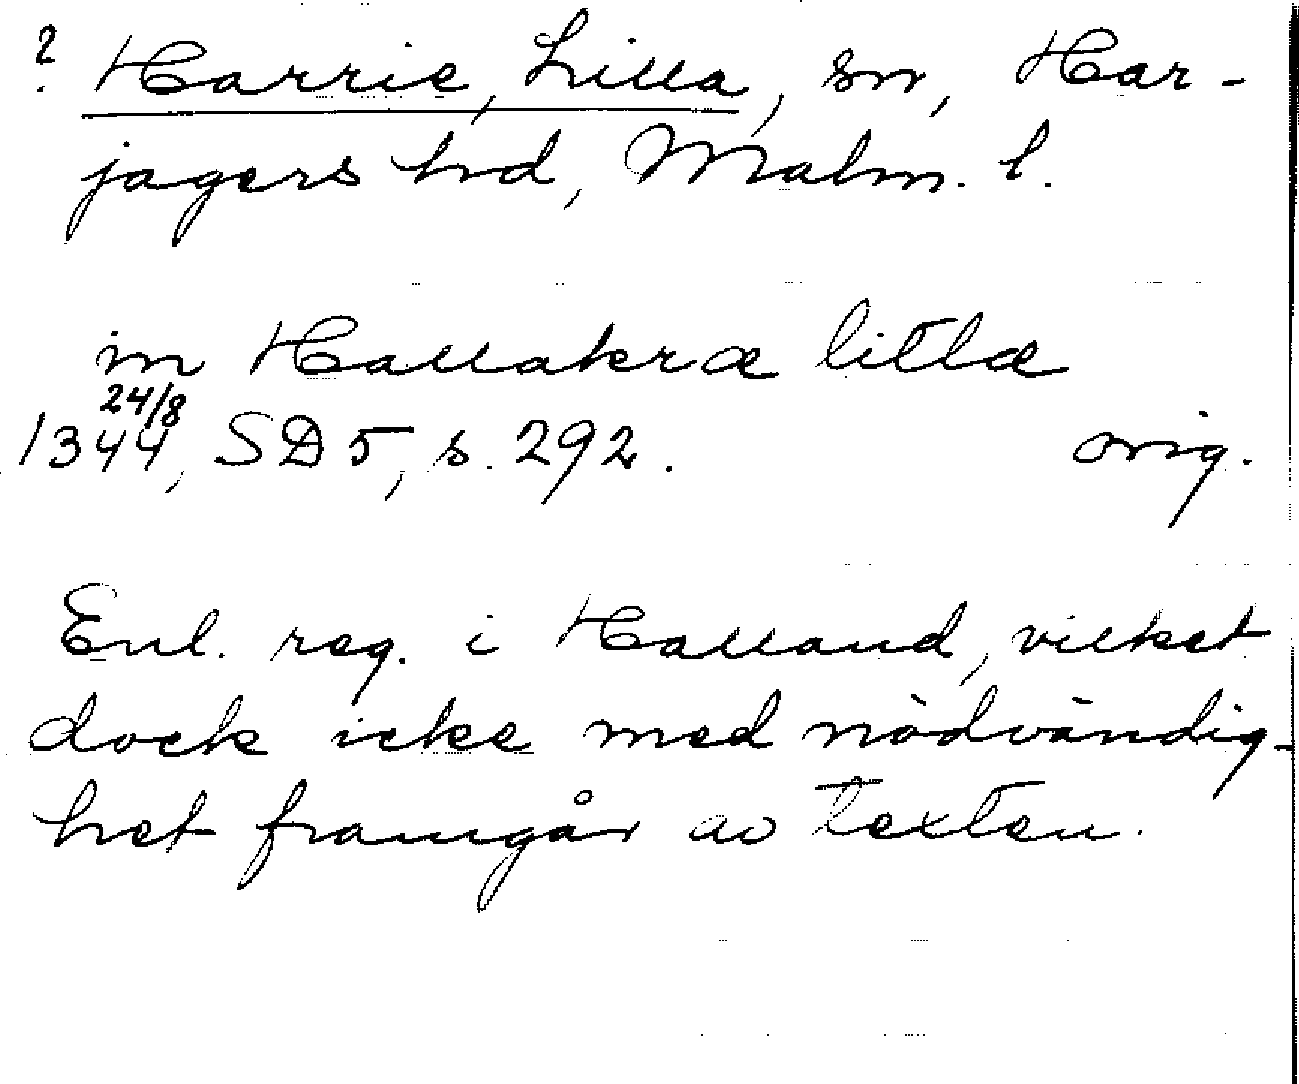 ? Harrie, Lilla, sn, Har-
jagers hrd, Malm. l.
in Hallakræ litlæ
24/8
1344, SD 5, s. 292. orig.
Enl. reg. i Halland, vilket
dock icke med nödvändig-
het framgår av texten.